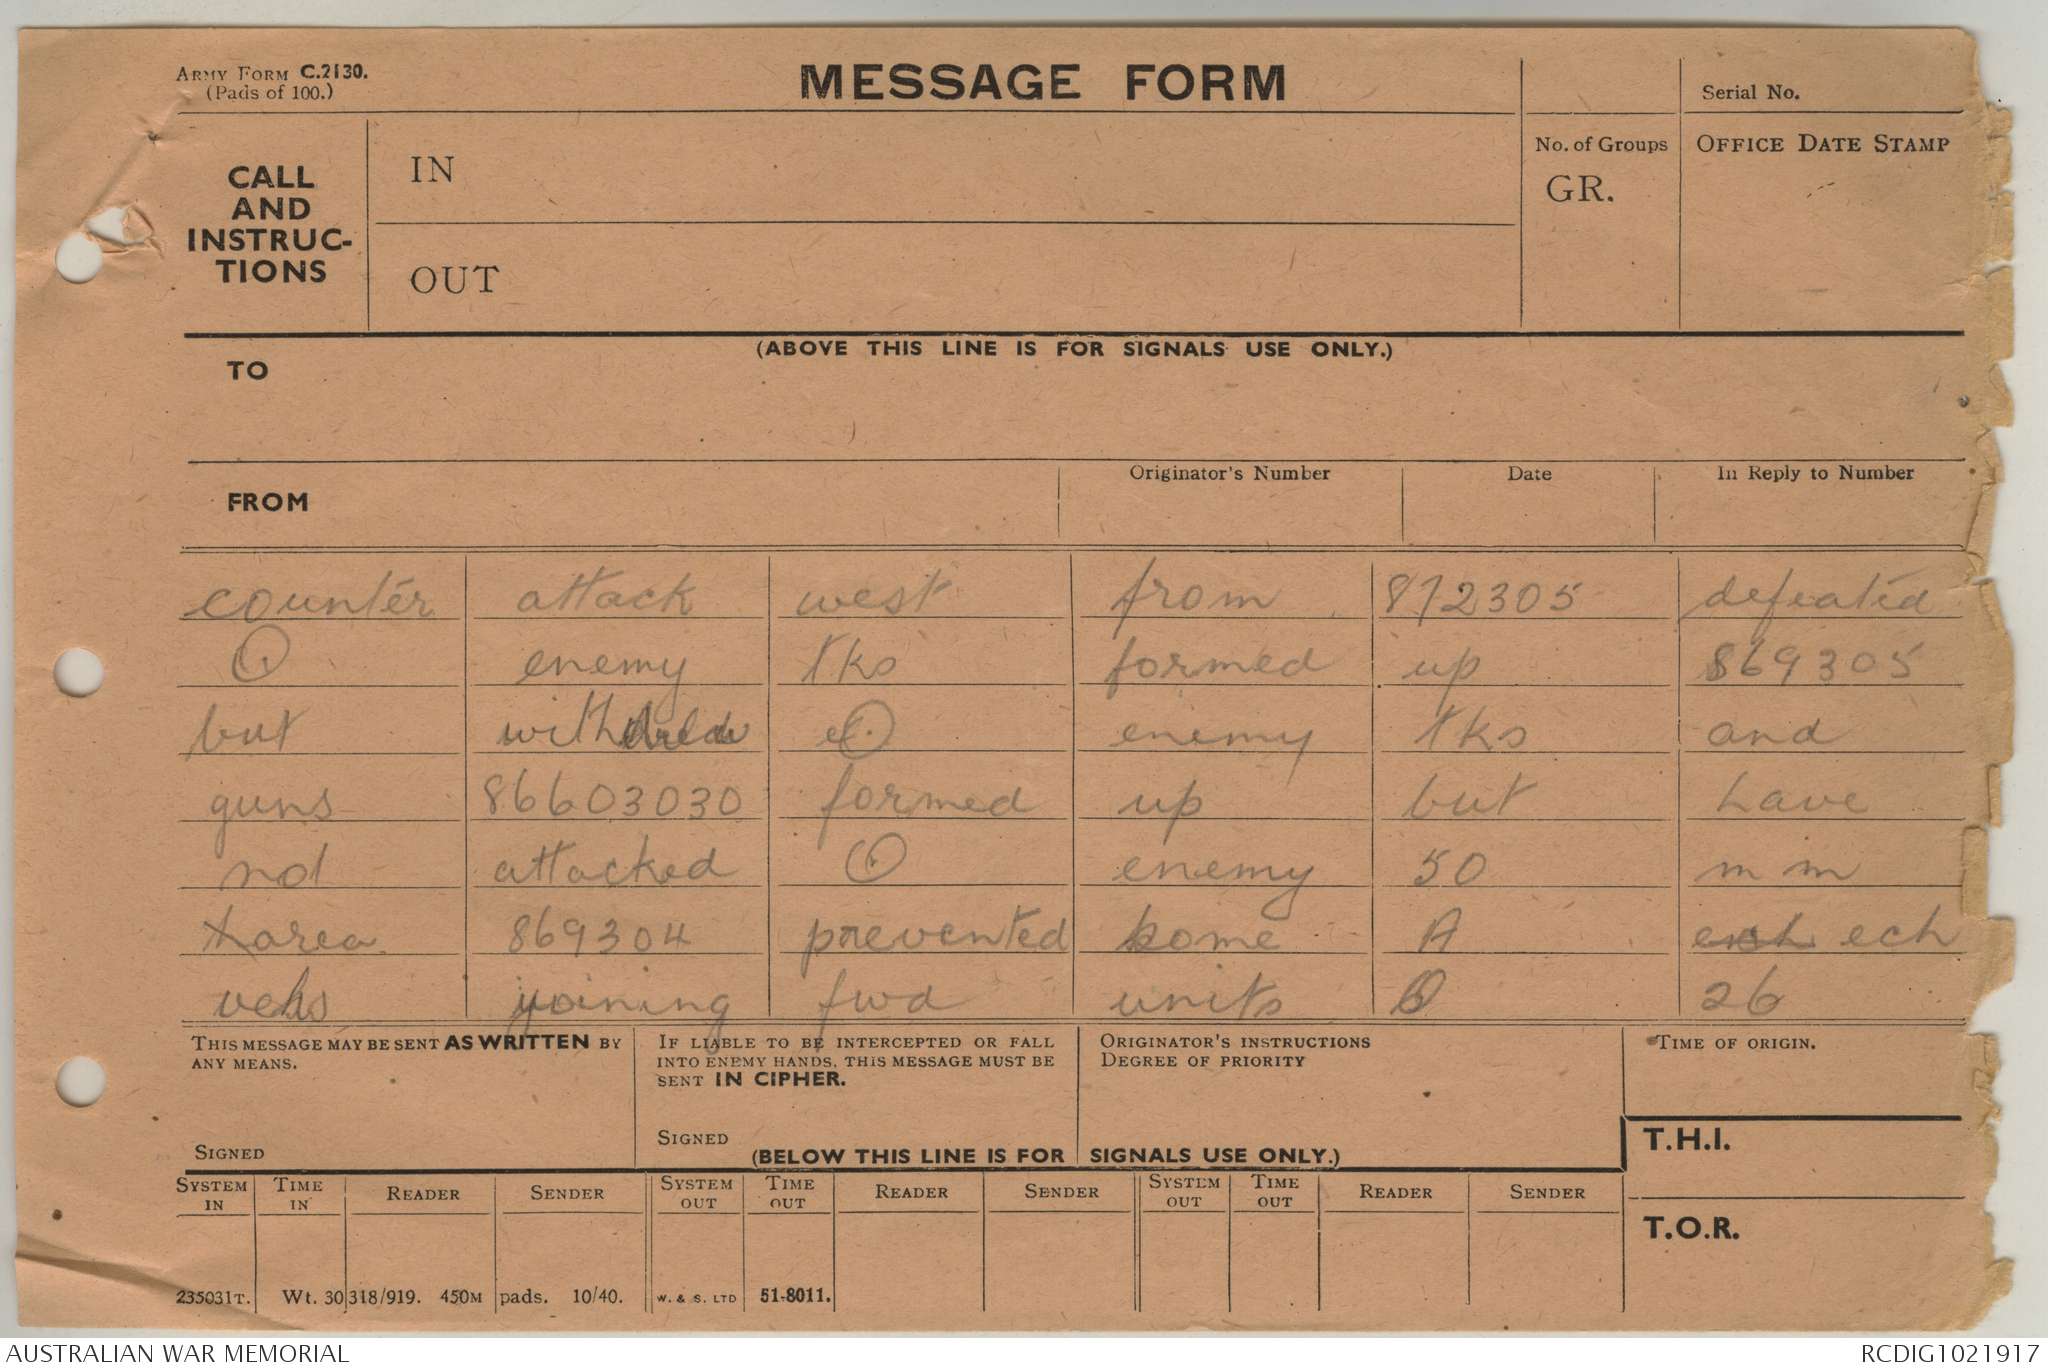 ARMY FORM C.2130.
(Pads of 100.)
MESSAGE FORM
Serial No.
CALL AND INSTRUC-TIONS
IN
OUT
No. of Groups
GR.
OFFICE DATE STAMP
(ABOVE THIS LINE IS FOR SIGNALS USE ONLY.)
TO
FROM
Originator's Number
Date
In Reply to Number
counter attack west from 872305 defeated
⊙ enemy tks formed up 869305
but withdrew ⊙ enemy tks and
guns 86603030 formed up but have
not attacked ⊙ enemy 50 mm
area 869304 prevented some A ech
vehs joining fwd units ⊙ 26
THIS MESSAGE MAY BE SENT AS WRITTEN BY
ANY MEANS.
SIGNED
IF LIABLE TO BE INTERCEPTED OR FALL
INTO ENEMY HANDS, THIS MESSAGE MUST BE
SENT IN CIPHER.
SIGNED
ORIGINATOR'S INSTRUCTIONS
DEGREE OF PRIORITY
TIME OF ORIGIN.
(BELOW THIS LINE IS FOR SIGNALS USE ONLY.)
T.H.I.
T.O.R.
SYSTEM IN TIME IN READER SENDER SYSTEM OUT TIME OUT READER SENDER SYSTEM OUT TIME OUT READER SENDER
235031T. Wt. 30318/919. 450M pads. 10/40. W. & S. LTD 51-8011.
AUSTRALIAN WAR MEMORIAL
RCDIG1021917